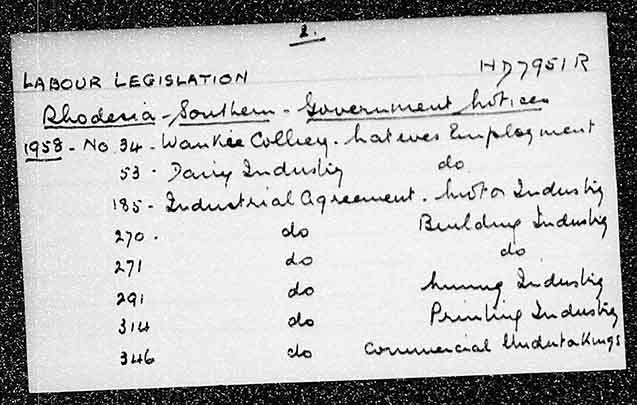 2.
LABOUR LEGISLATION HD7951R
Rhodesia - Southern - Government Notices
1958 - No 34 - Wankie Colliery. Natives Employment
53 - Dairy Industry do
185 - Industrial Agreement. Motor Industry
270 - do Building Industry
271 do do
291 do Mining Industry
314 do Printing Industry
346 do Commercial Undertakings